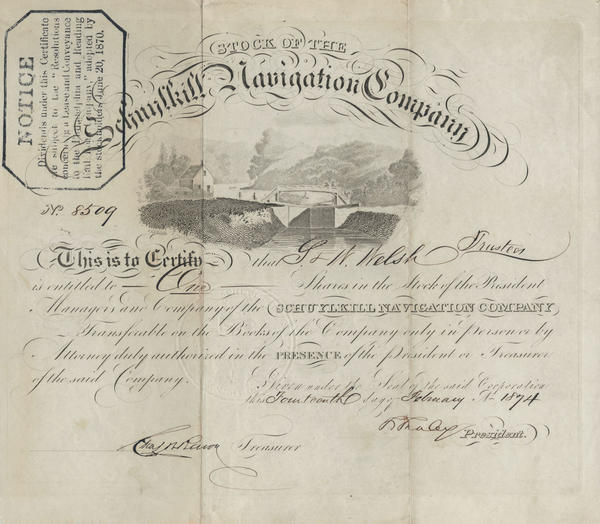 NOTICE
Dividends under this Certificate
are subject to the "Resolutions
concerning a Lease and Conveyance
to the Philadelphia and Reading
Rail Road Company," adopted by
the stockholders June 20, 1870.
STOCK OF THE
Schuylkill Navigation Company
No. 8509
This is to Certify that S & W. Welsh Trustees
is entitled to One Shares in the Stock of the President
Managers and Company of the SCHUYLKILL NAVIGATION COMPANY
Transferable on the Books of the Company only in person or by
Attorney duly authorized in the PRESENCE of the President or Treasurer
of the said Company.
Given under the Seal of the said Corporation
this Fourteenth day of February A. 1874
President.
Treasurer